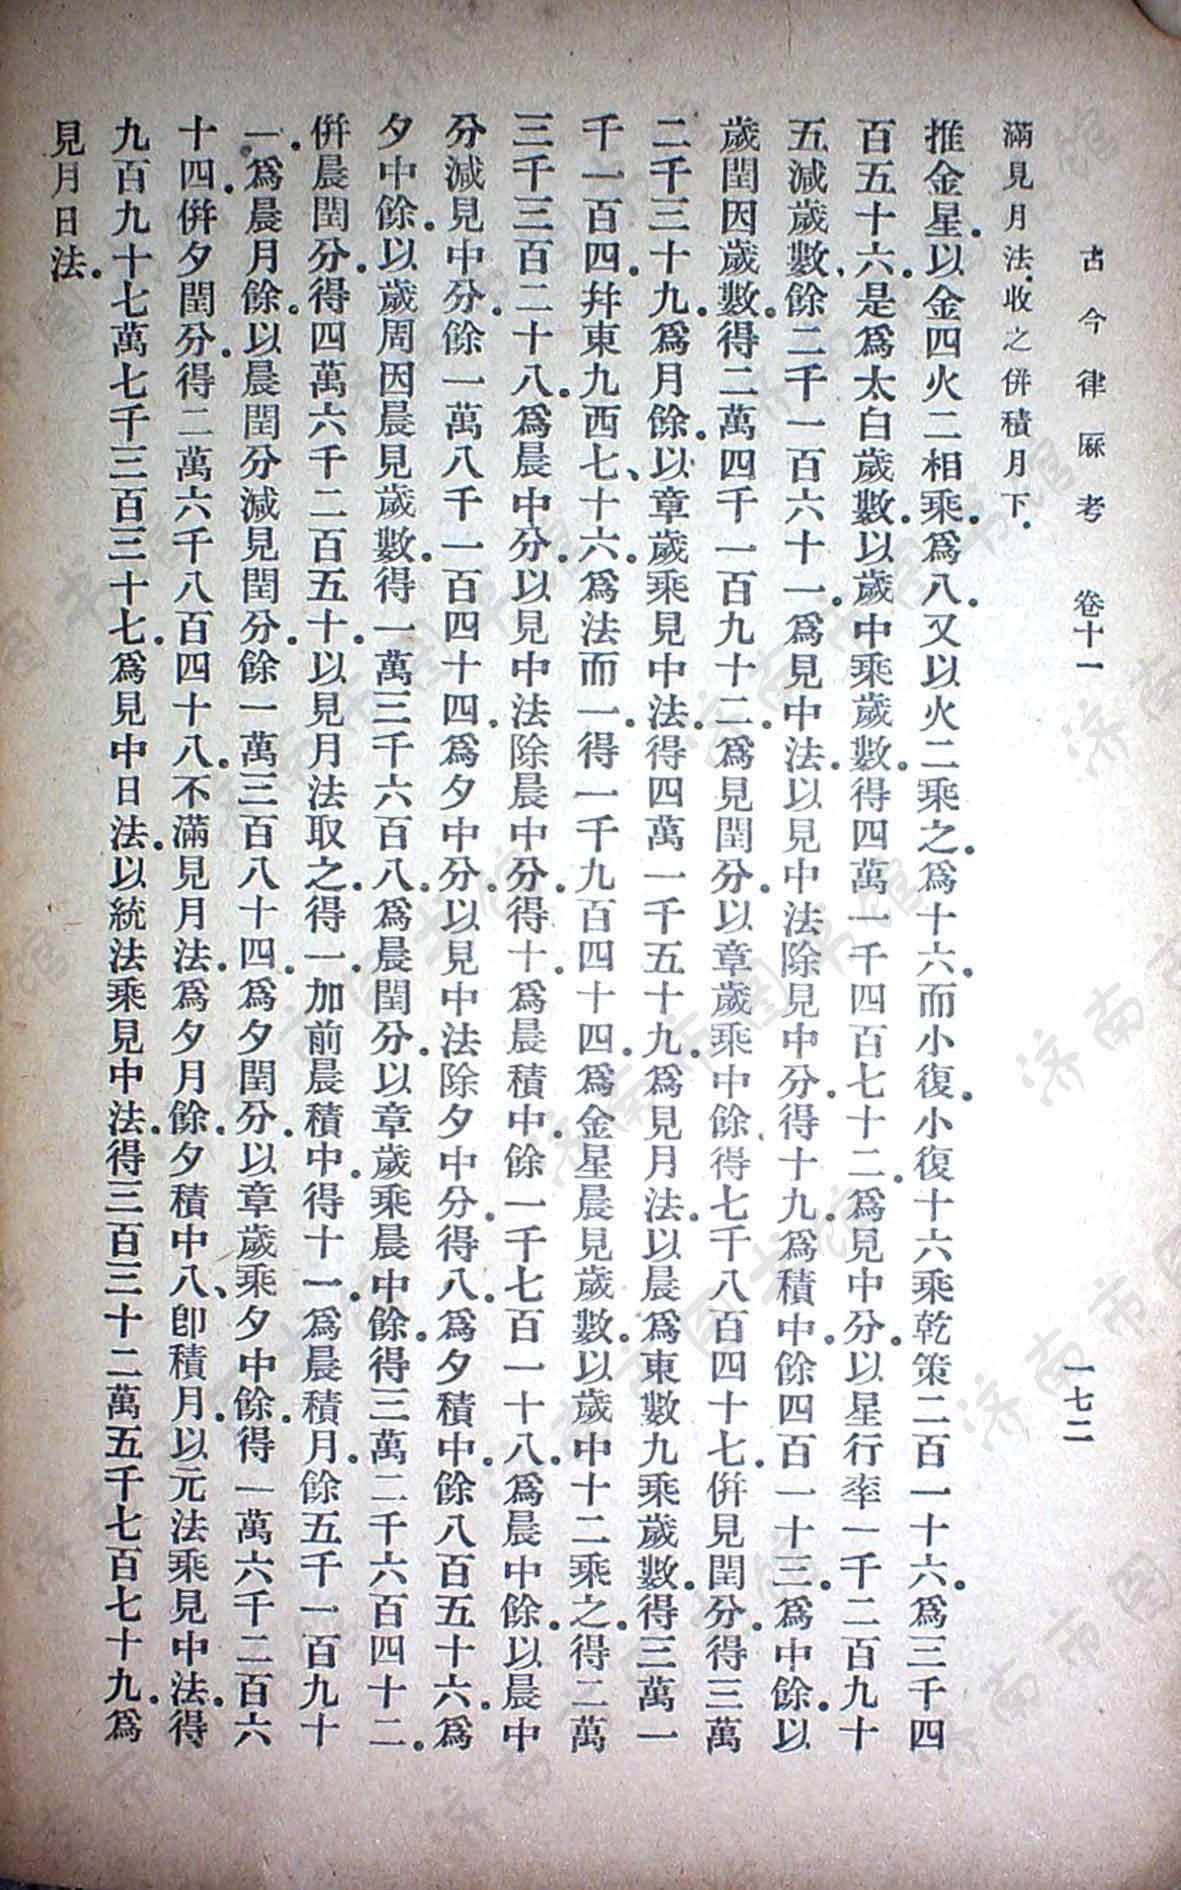 古今律厤考　卷十一　一七二
滿見月法．收之併積月下．
推金星。以金四火二相乘。爲八。又以火二乘之。爲十六。而小復。小復十六乘乾策二百一十六。爲三千四
百五十六。是爲太白歲數。以歲中乘歲數。得四萬一千四百七十二。爲見中分。以星行率一千二百九十
五減歲數、餘二千一百六十一。爲見中法。以見中法除見中分。得十九。爲積中。餘四百一十三。爲中餘。以
歲閏因歲數。得二萬四千一百九十二。爲見閏分。以章歲乘中餘、得七千八百四十七。併見閏分。得三萬
二千三十九。爲月餘。以章歲乘見中法。得四萬一千五十九。爲見月法。以晨爲東數九乘歲數。得三萬一
千一百四。幷東九西七、十六。爲法而一。得一千九百四十四。爲金星晨見歲數。以歲中十二乘之。得二萬
三千三百二十八。爲晨中分。以見中法除晨中分。得十。爲晨積中。餘一千七百一十八。爲晨中餘。以晨中
分減見中分。餘一萬八千一百四十四。爲夕中分。以見中法除夕中分。得八。爲夕積中。餘八百五十六。爲
夕中餘。以歲周因晨見歲數。得一萬三千六百八。爲晨閏分。以章歲乘晨中餘。得三萬二千六百四十二。
併晨閏分。得四萬六千二百五十。以見月法取之。得一加前晨積中。得十一。爲晨積月。餘五千一百九十
一。爲晨月餘。以晨閏分減見閏分。餘一萬三百八十四。爲夕閏分。以章歲乘夕中餘。得一萬六千二百六
十四。併夕閏分。得二萬六千八百四十八。不滿見月法。爲夕月餘。夕積中八、卽積月。以元法乘見中法。得
九百九十七萬七千三百三十七。爲見中日法。以統法乘見中法。得三百三十二萬五千七百七十九。爲
見月日法。